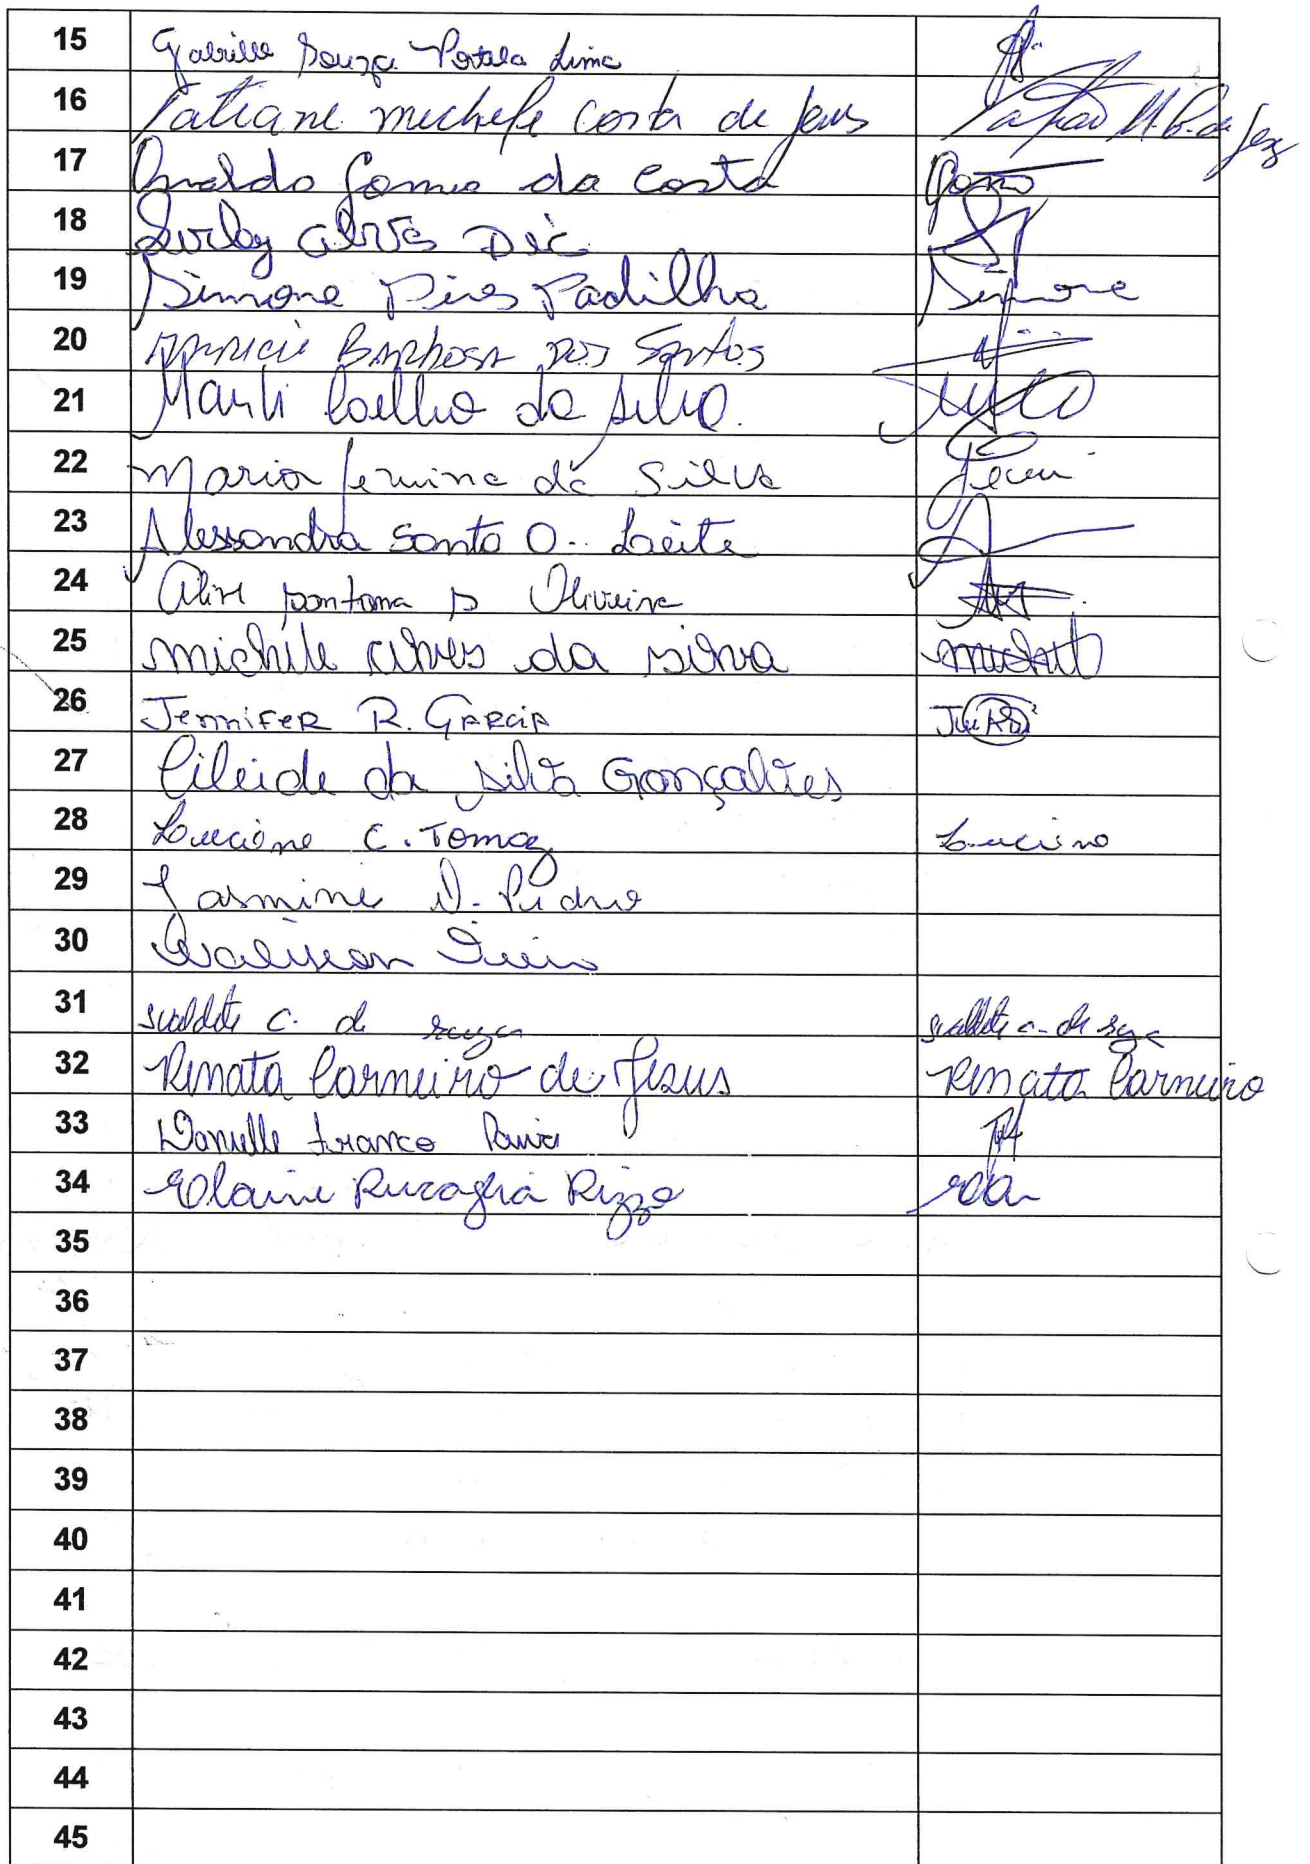 15 Gabrielle Souza Portela Lima
16 Tatiane michele costa de Jesus
17 Osvaldo Gomes da Costa
18 alves
19 Simone Pires Padilha Simone
20 Barbosa dos Santos
21 Marli Coelho da Silva.
22 Maria da Silva
23 Alessandra Santo O. Leite
24 Aline Santana D Oliveira
25 michele alves da silva
26 Jennifer R. Garcia
27 Cileide da Silva Gonçalves
28 Luciene C. Tomaz
29 Jasmine D. Pedro
30
31 c. de
32 Renata Carneiro de Jesus Renata Carneiro
33 Danielle Franco Paiva
34 Elaine Rizzo
35
36
37
38
39
40
41
42
43
44
45